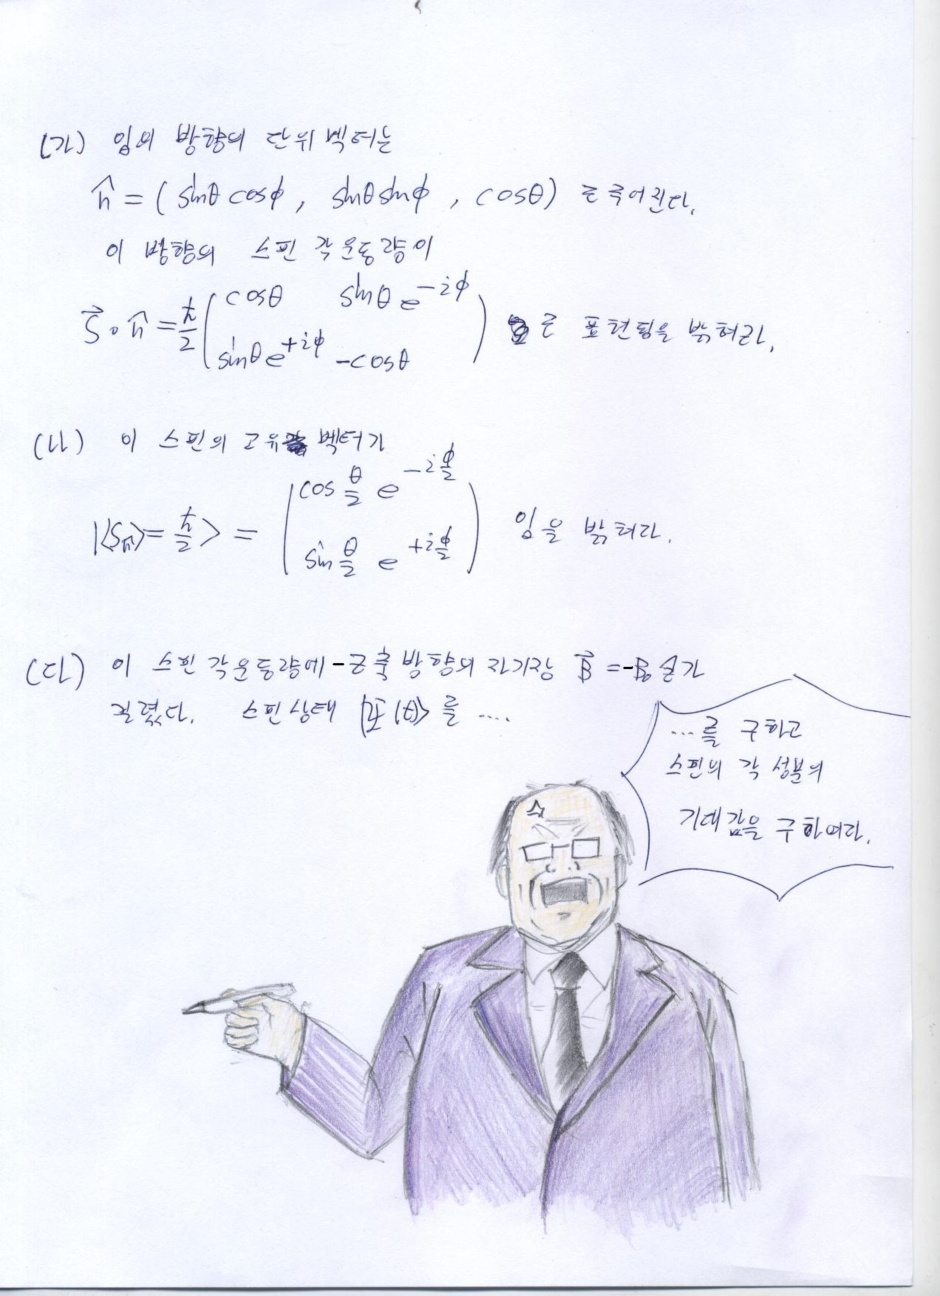 (가) 임의 방향의 단위 벡터는
n̂ = ( sinθ cosϕ , sinθ sinϕ , cosθ) 로 주어진다.
이 방향의 스핀 각운동량이
S⃗ ∘ n̂ = ħ/2 ( cosθ sinθ e^{-iϕ} ; sinθ e^{+iϕ} -cosθ ) 로 표현됨을 밝혀라.
(나) 이 스핀의 고유 벡터가
|⟨Sₙ⟩ = ħ/2 > = ( cos θ/2 e^{-iϕ/2} ; sin θ/2 e^{+iϕ/2} ) 임을 밝혀라.
(다) 이 스핀 각운동량에 -z축 방향의 자기장 B⃗ = -B₀ẑ가
걸렸다. 스핀상태 |Ψ(t)> 를 ....
...를 구하고
스핀의 각 성분의
기대값을 구하여라.